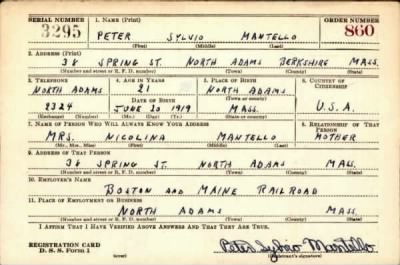 SERIAL NUMBER 1. NAME (Print) ORDER NUMBER
3295 PETER SYLVIO MANTELLO 860
(First) (Middle) (Last)
2. ADDRESS (Print)
38 SPRING ST. NORTH ADAMS BERKSHIRE MASS.
(Number and street or R. F. D. number) (Town) (County) (State)
3. TELEPHONE 4. AGE IN YEARS 5. PLACE OF BIRTH 6. COUNTRY OF CITIZENSHIP
NORTH ADAMS 21 NORTH ADAMS
DATE OF BIRTH (Town or county)
2324 JUNE 20 1919 MASS. U.S.A.
(Exchange) (Number) (Mo.) (Day) (Yr.) (State or country)
7. NAME OF PERSON WHO WILL ALWAYS KNOW YOUR ADDRESS 8. RELATIONSHIP OF THAT PERSON
MRS. NICOLINA MANTELLO MOTHER
(Mr., Mrs., Miss) (First) (Middle) (Last)
9. ADDRESS OF THAT PERSON
38 SPRING ST. NORTH ADAMS MASS.
(Number and street or R. F. D. number) (Town) (County) (State)
10. EMPLOYER'S NAME
BOSTON AND MAINE RAILROAD
11. PLACE OF EMPLOYMENT OR BUSINESS
NORTH ADAMS MASS.
(Number and street or R. F. D. number) (Town) (County) (State)
I AFFIRM THAT I HAVE VERIFIED ABOVE ANSWERS AND THAT THEY ARE TRUE.
REGISTRATION CARD
D. S. S. Form 1 Peter Sylvio Mantello
(Registrant's signature)